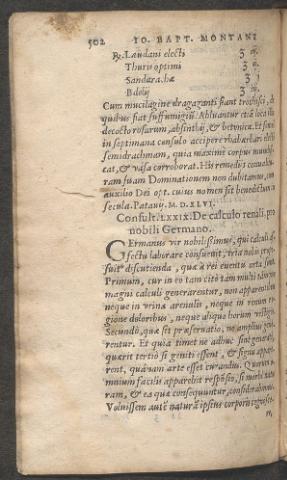 502 IO. BAPT. MONTANI
℞. Laudani electi ʒ ij.
Thuris optimi ʒ ij.
Sandarachæ ʒ j
Bdelij ʒ
Cum mucilagine dragaganti fiant trochisci, de
quibus fiat suffumigiũ. Abluantur etiã loca illa
decocto rosarum, absinthij, & betonicæ. Et semel
in septimana consulo accipere rhabarbari electi
semidrachmam, quia maximè corpus mundifi
cat, & uisca corroborat. His remedijs conualitu
ram suam Dominationem non dubitamus, cum
auxilio Dei opt. cuius nomen sit benedictum in
secula. Patauij. M. D. XLVI.
Consult. LXXIX. De calculo renali, pro
nobili Germano.
GErmanus uir nobilissimus, qui calculi af-
fectu laborare consueuit, tria nobis propo-
suit discutienda, quæ à rei euentu orta sunt.
Primum, cur in eo tam citò tam multi tamque
magni calculi generarentur, non apparentibus
neque in urina arenulis, neque in renum re-
gione doloribus, neque aliquo horum uestigio.
Secundò, quæ sit præseruatio, ne amplius gene-
rentur. Et quia timet ne adhuc sint generati,
quærit tertiò si geniti essent, & signa appare-
rent, quánam arte esset curandus. Quorum o-
mnium facilis apparebit responsio, si morbi natu-
ram, & ea quæ consequuntur, considerabimus.
Voluissem autẽ naturã ipsius corporis